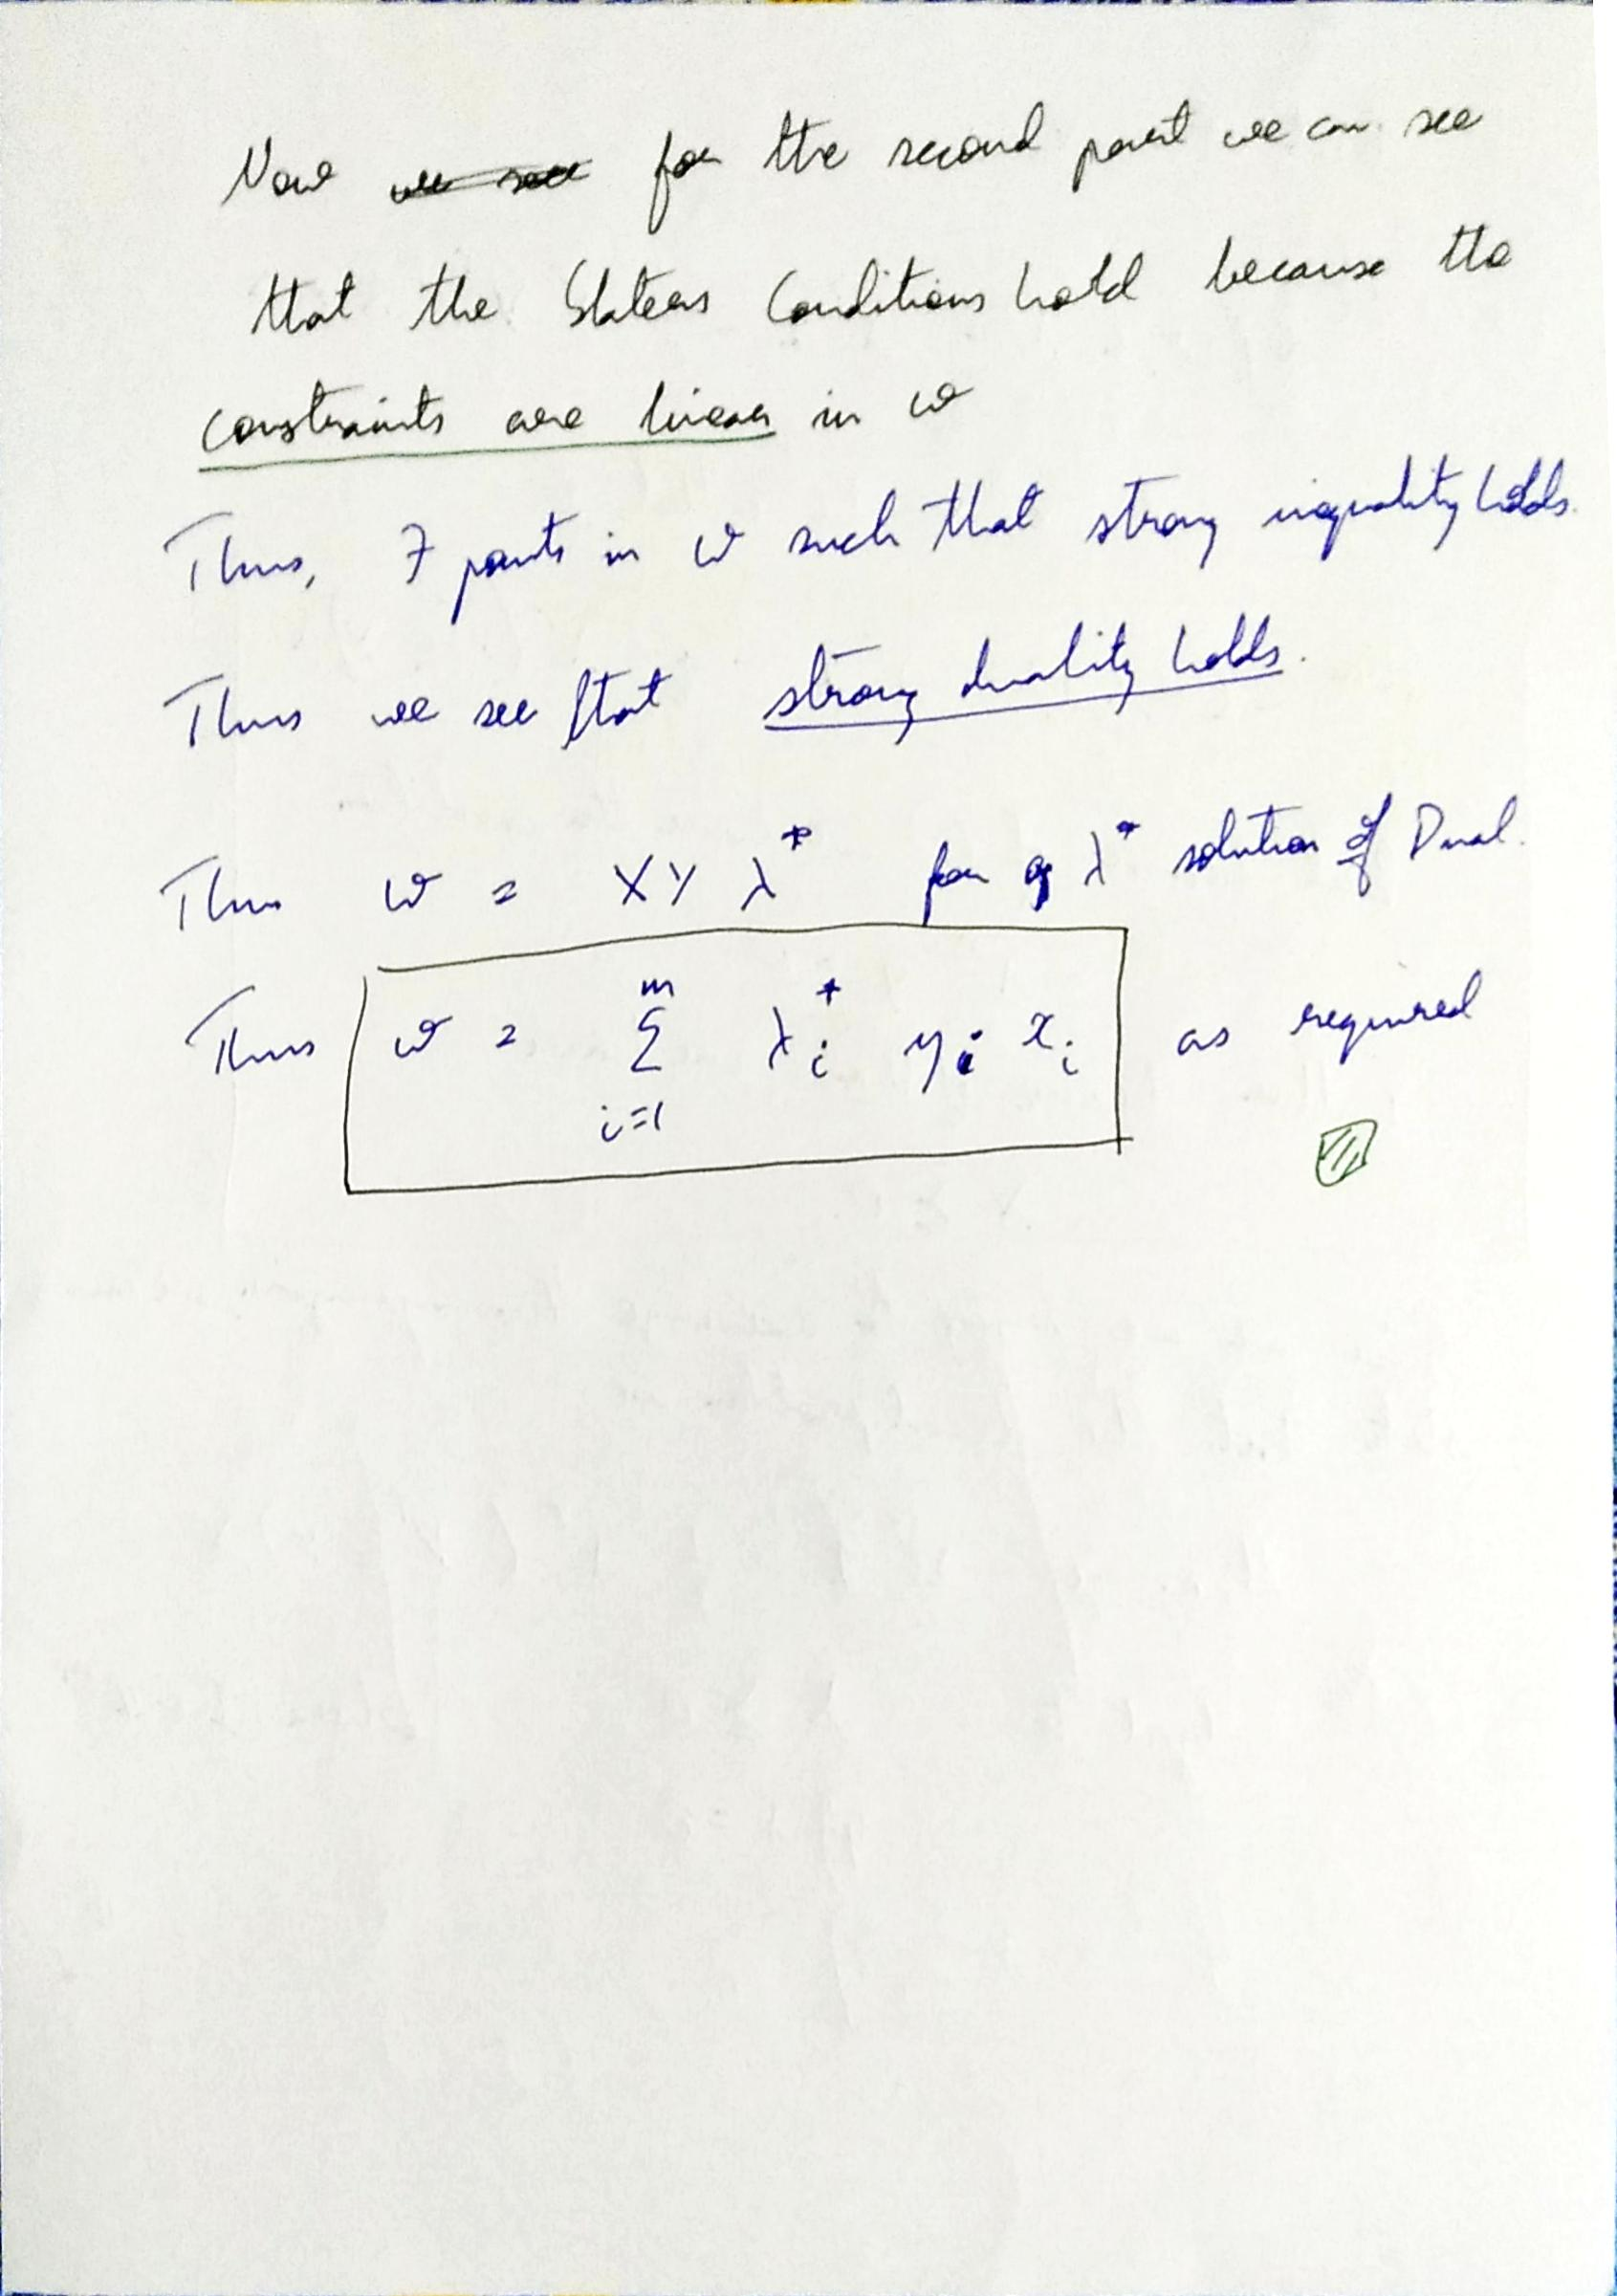 Now we see for the second part we can see
that the Slaters Conditions hold because the
constraints are linear in w
Thus, ∃ points in w such that strong inequality holds.
Thus we see that strong duality holds.
Thus w = XY λ* for λ* solution of Dual.
Thus w = Σ_{i=1}^{m} λ_i^* y_i x_i as required